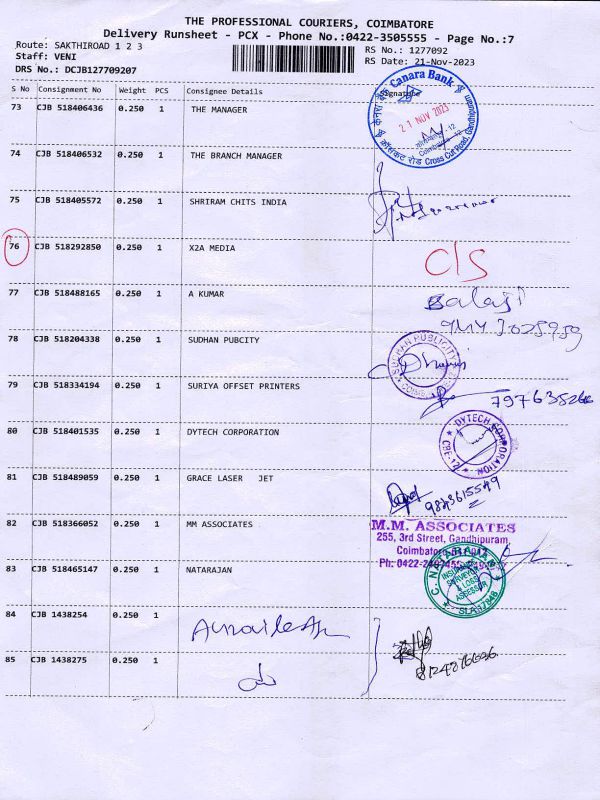 THE PROFESSIONAL COURIERS, COIMBATORE
Delivery Runsheet - PCX - Phone No.:0422-3505555 - Page No.:7
Route: SAKTHIROAD 1 2 3
RS No.: 1277092
Staff: VENI
RS Date: 21-Nov-2023
DRS No.: DCJB127709207
S No Consignment No Weight PCS Consignee Details Signature
Canara Bank
केनरा बैंक
21 NOV 2023
Cross Cut Road, Gandhipuram
73 CJB 518406436 0.250 1 THE MANAGER
74 CJB 518406532 0.250 1 THE BRANCH MANAGER
75 CJB 518405572 0.250 1 SHRIRAM CHITS INDIA
76 CJB 518292850 0.250 1 X2A MEDIA C/S
77 CJB 518488165 0.250 1 A KUMAR Balaji
78 CJB 518204338 0.250 1 SUDHAN PUBCITY
SUDHAN PUBLICITY
79 CJB 518334194 0.250 1 SURIYA OFFSET PRINTERS
80 CJB 518401535 0.250 1 DYTECH CORPORATION
DYTECH CORPORATION
CBE-12
81 CJB 518489059 0.250 1 GRACE LASER JET
82 CJB 518366052 0.250 1 MM ASSOCIATES
M.M. ASSOCIATES
255, 3rd Street, Gandhipuram,
83 CJB 518465147 0.250 1 NATARAJAN
C. NATARAJAN
INSURANCE
SURVEYOR
& LOSS
ASSESSOR
84 CJB 1438254 0.250 1
85 CJB 1438275 0.250 1